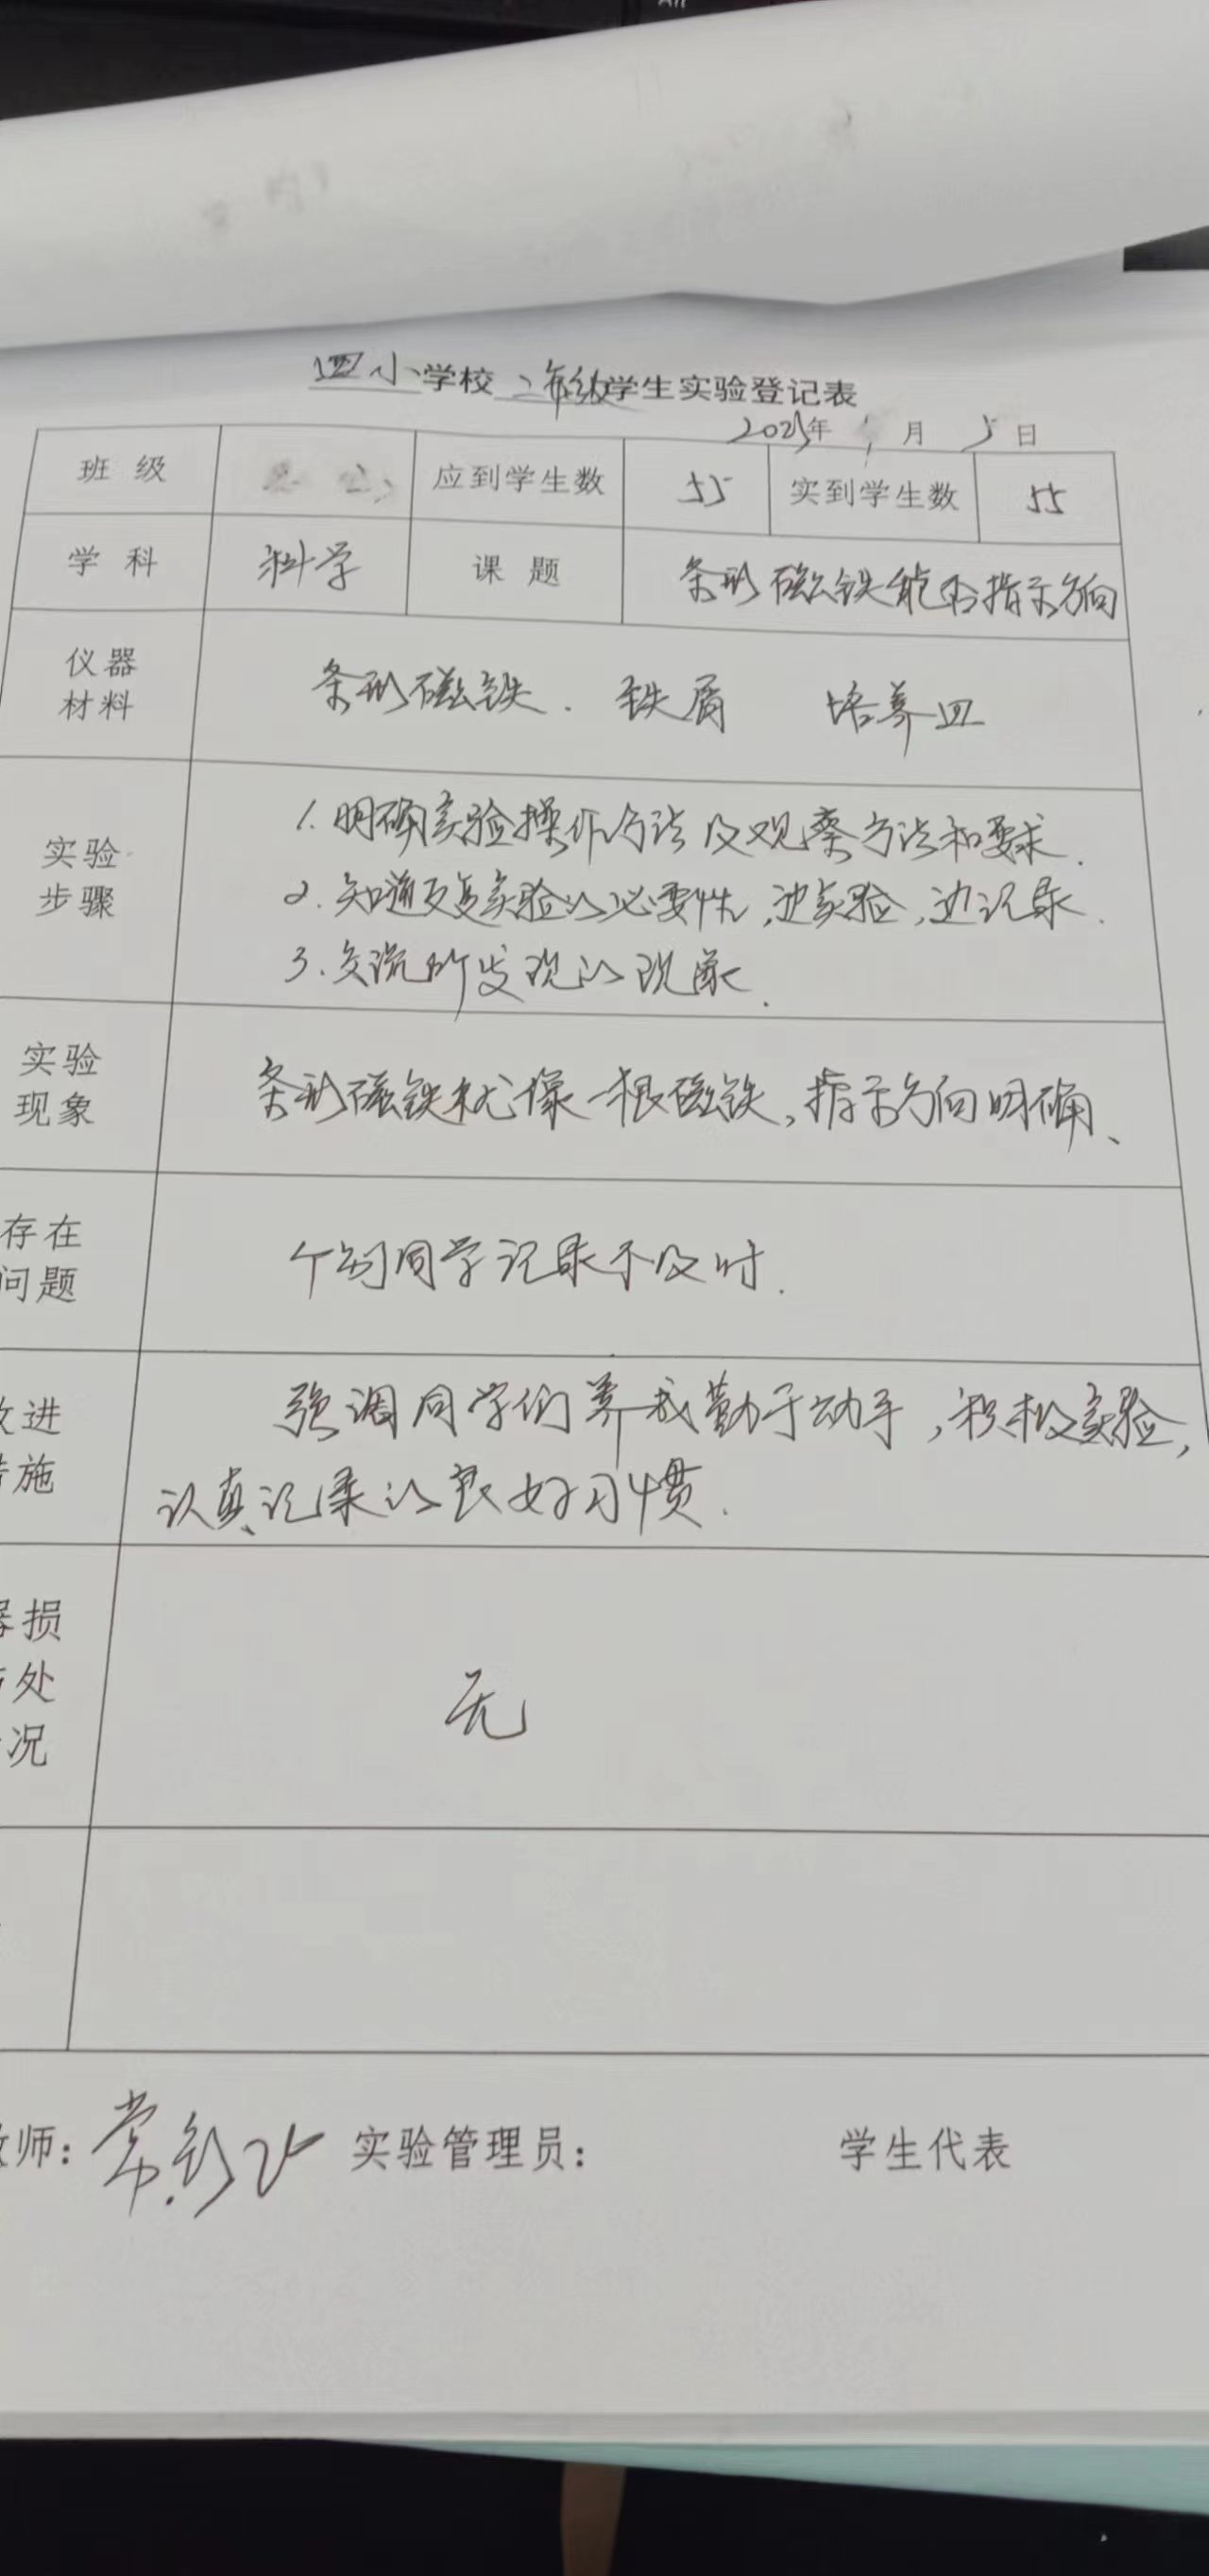 四小学校 二年级学生实验登记表
2025年 月 5日
班级 应到学生数 55 实到学生数 55
学科 科学 课题 条形磁铁能否指示方向
仪器
材料
条形磁铁. 铁屑 培养皿
实验
步骤
1. 明确实验操作方法及观察方法和要求.
2. 知道反复实验的必要性,边实验,边记录.
3. 交流所发现的现象.
实验
现象
条形磁铁就像一根磁铁,指示方向明确、
存在
问题
个别同学记录不及时.
改进
措施
强调同学们养成勤于动手,积极实验,
认真记录的良好习惯.
器损
处
况
无
教师: 常 实验管理员: 学生代表